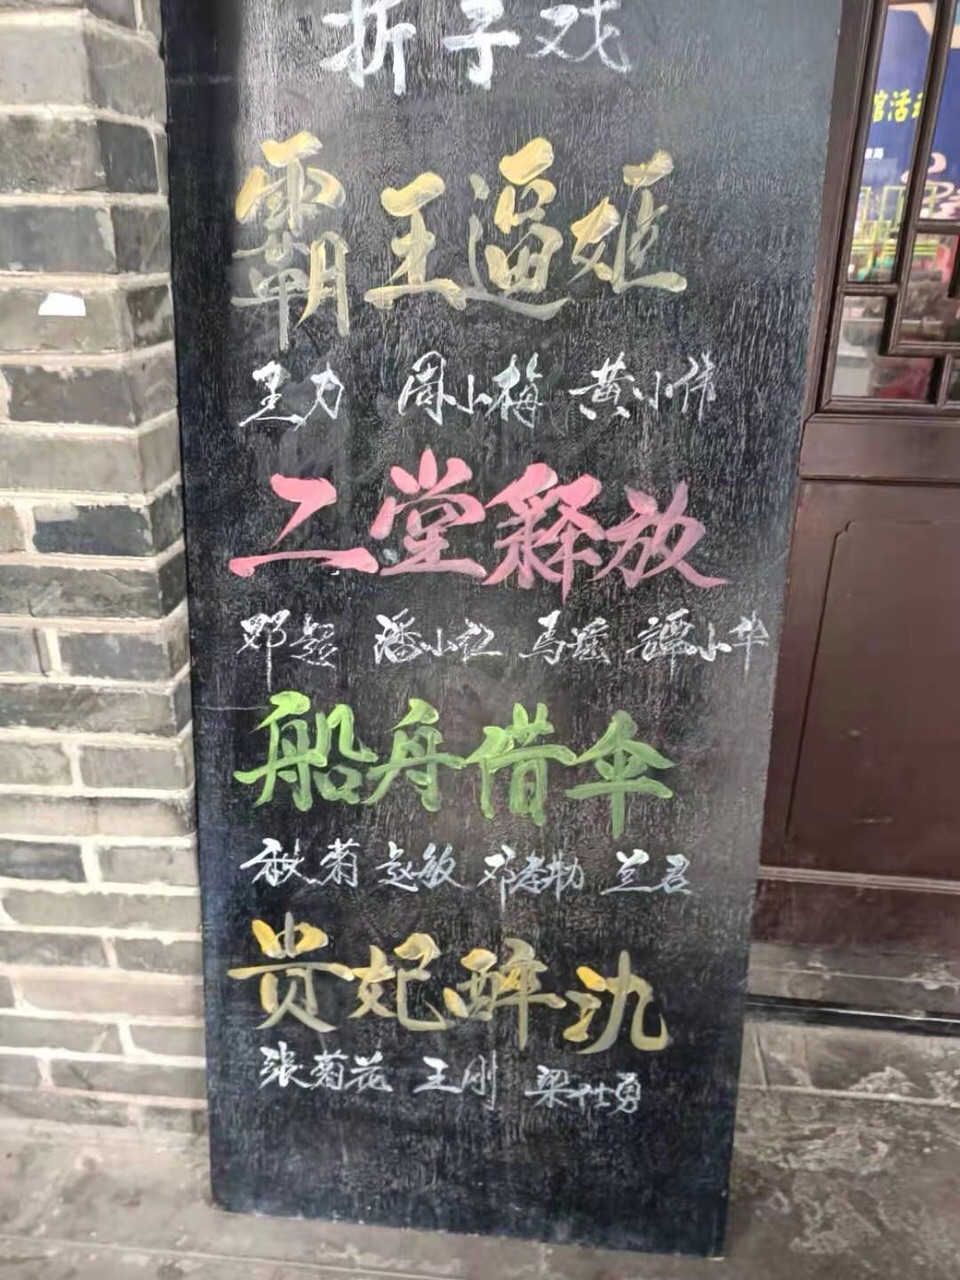 折子戏
霸王逼姬
王力 周小梅 黄小伟
二堂释放
邓超 潘小红 马瑶 谭小华
船舟借伞
秋菊 赵敏 邓春勤 兰君
贵妃醉氿
张菊花 王刚 梁仕勇
馆活动